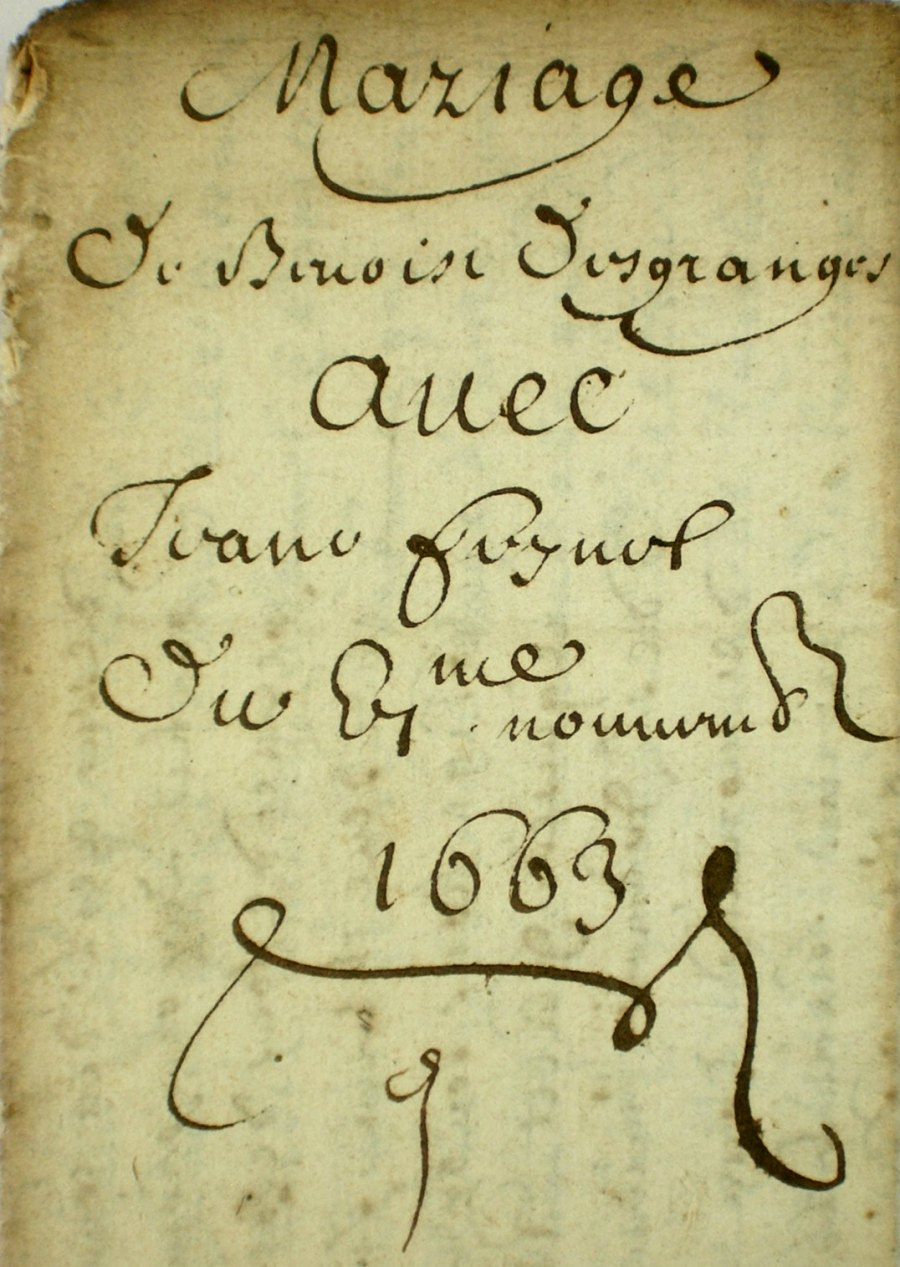 Mariage
De Benoist Desgranges
auec
Jeane
Du 6me nouemb
1663
9